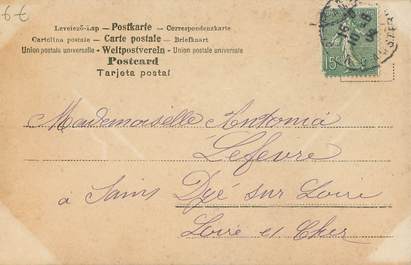 67
Levelező-Lap — Postkarte — Correspondenzkarte
Cartolina postale — Carte postale — Briefkaart
Union postale universelle — Weltpostverein — Union postale universelle
Postcard
Tarjeta postal
15
Mademoiselle Antonia
Lefevre
à Sains Dyé sur Loire
Loire et Cher